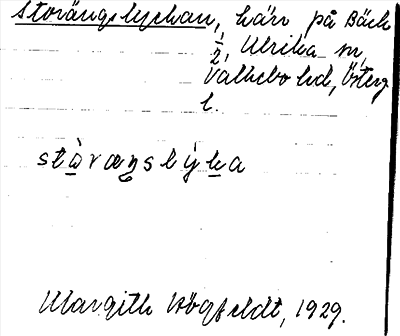 Storängslyckan, härr på Bäck
1/2, Ulrika sn,
Valkebo hd, Österg.
l.
stàrœŋslýka
Margith Högfeldt, 1929.